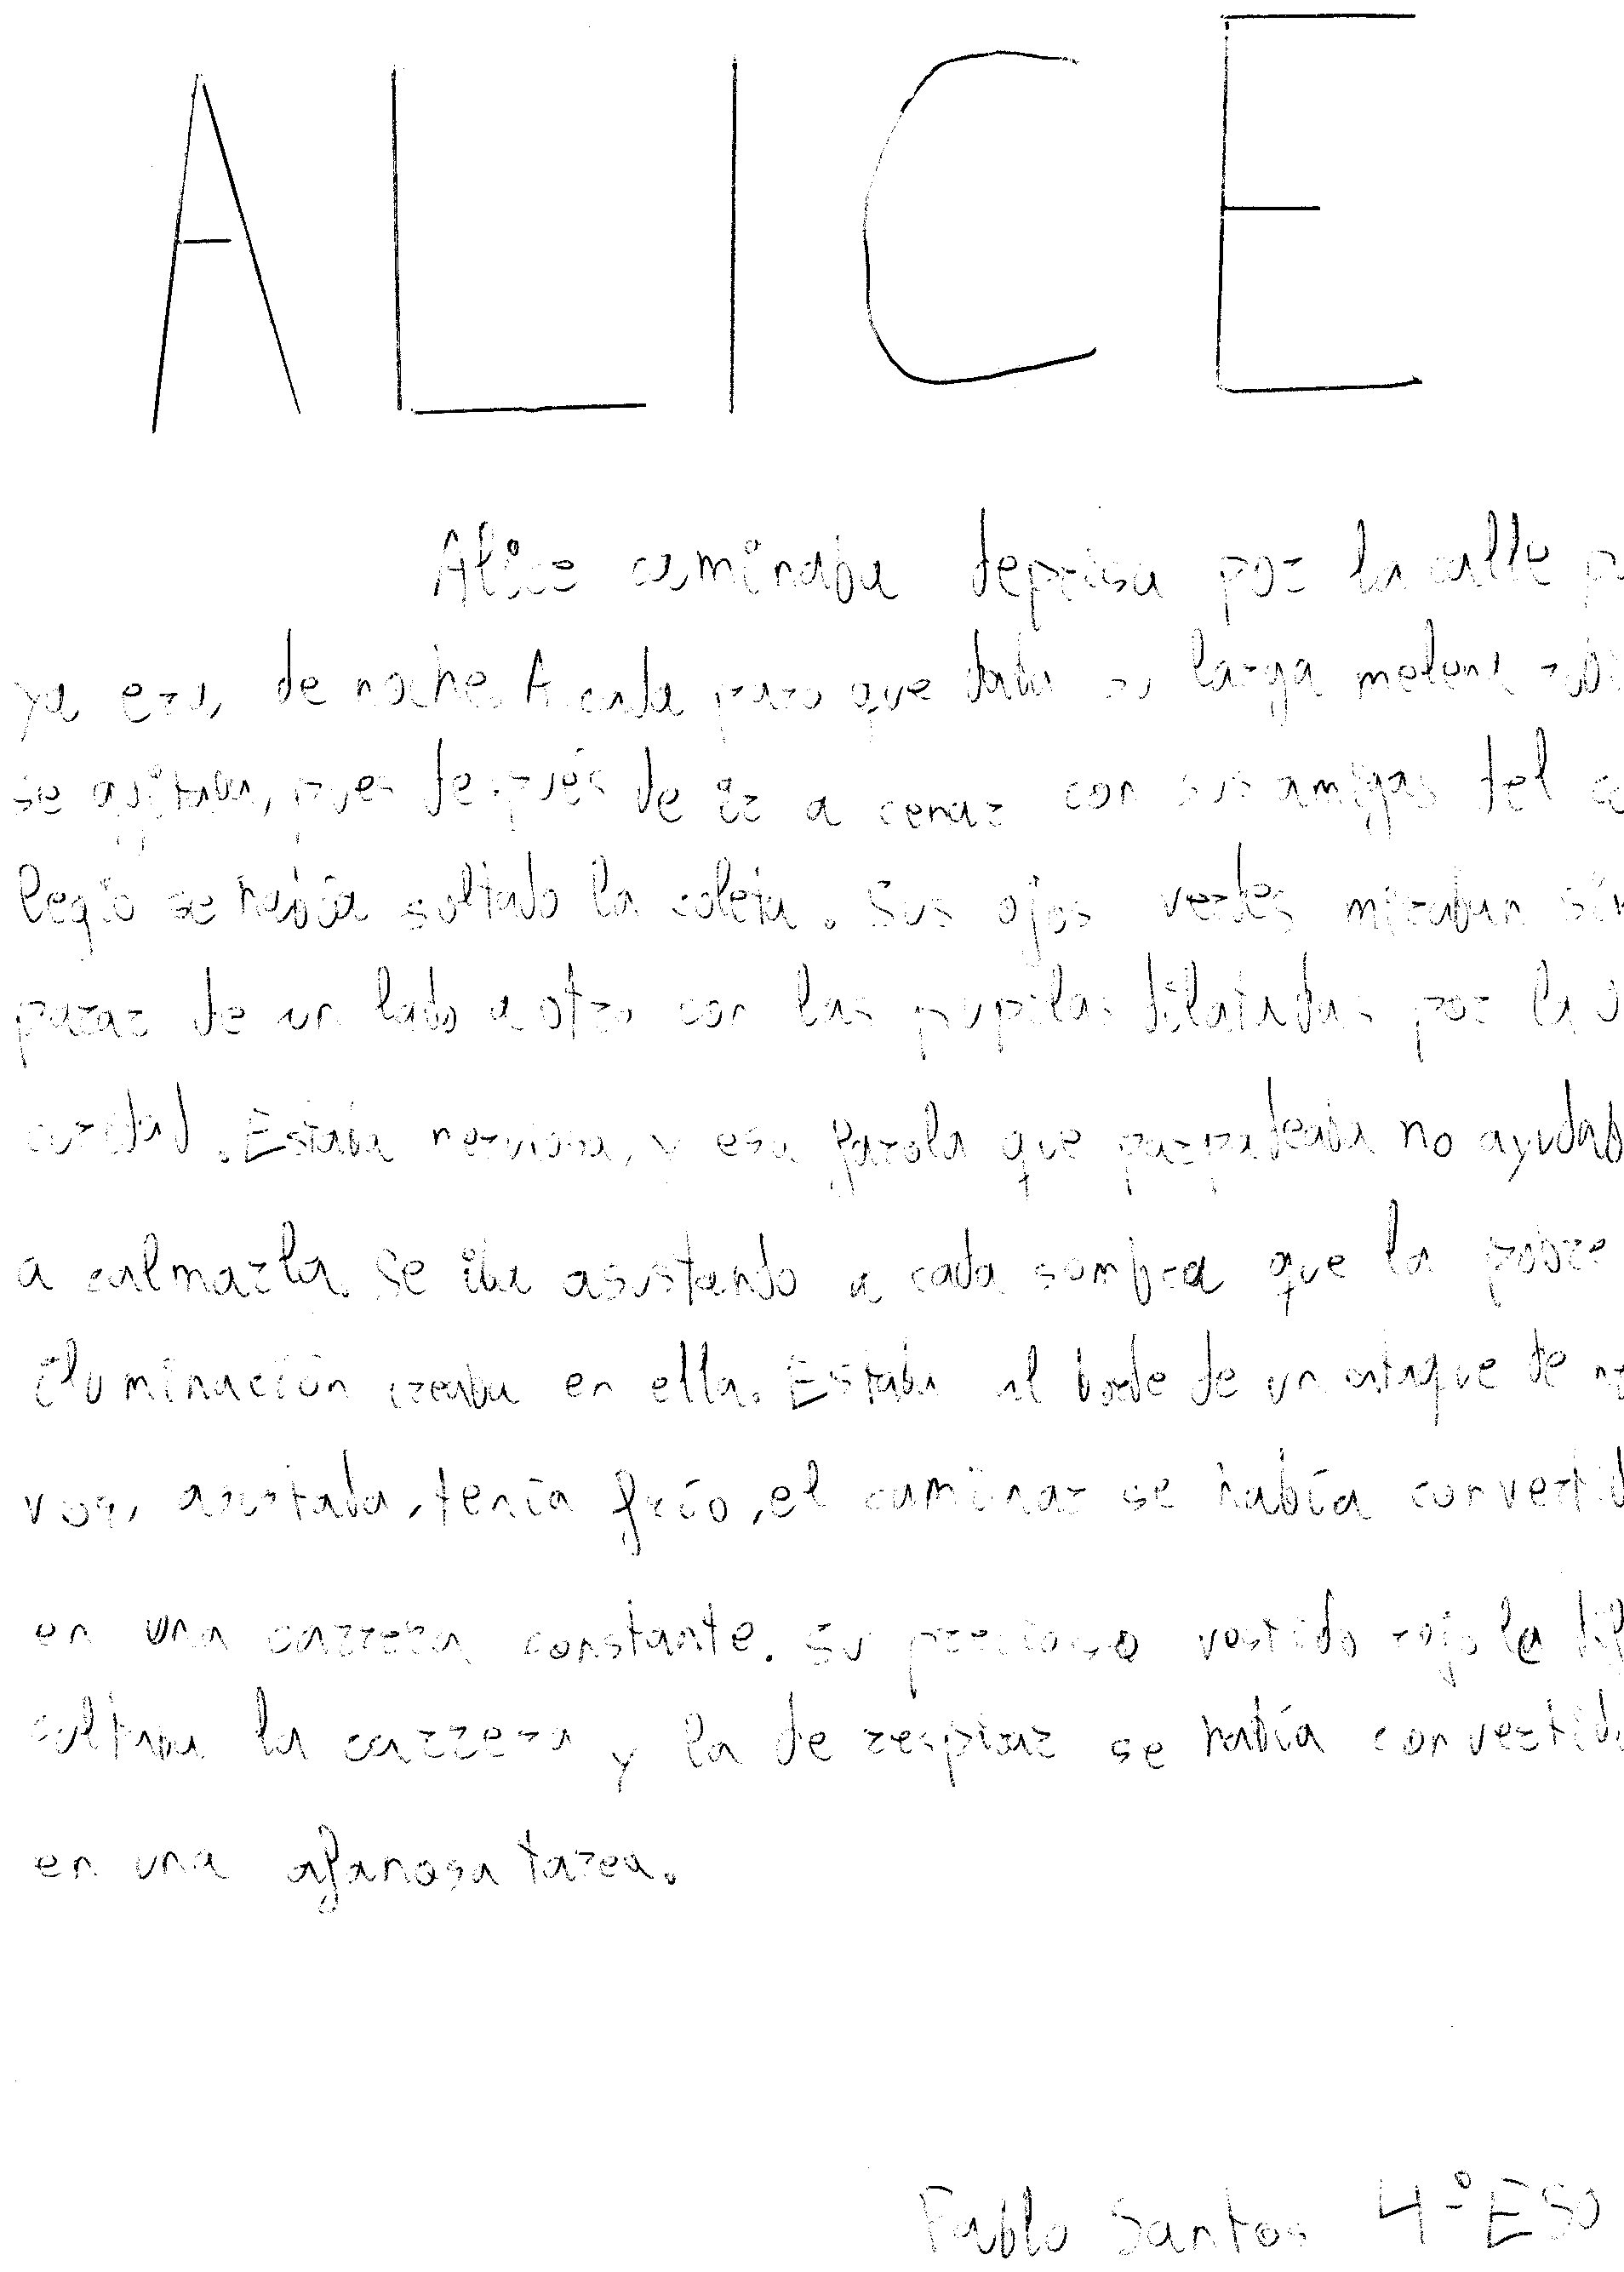 ALICE
Alice caminaba deprisa por la calle
ya era, de noche. A cada paso que daba su larga melena
se agitaba, pues después de ir a cenar con sus amigas del co
legio se había soltado la coleta. Sus ojos verdes miraban sin
parar de un lado a otro con las pupilas dilatadas por la
curidad. Estaba nerviosa, y esa farola que parpadeaba no ayudab
a calmarla. Se iba asustando a cada sombra que la pobre
iluminación creaba en ella. Estaba al borde de un ataque de
vios, asustada, tenía frío, el caminar se había convertid
en una carrera constante. Su precioso vestido rojo la
cultaba la carrera y la de respirar se había convertido
en una afanosa tarea.
Pablo Santos 4º ESO